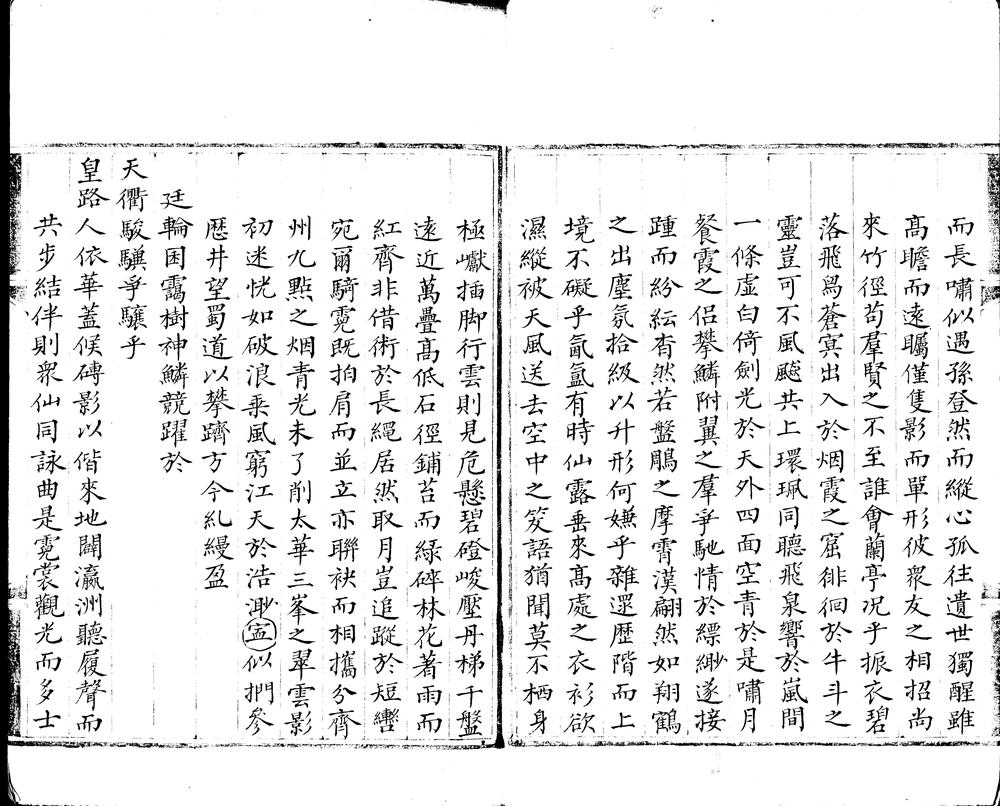 而長嘯似遇孫登然而縱心孤往遺世獨醒雖
高瞻而遠矚僅隻影而單形彼衆友之相招尚
來竹徑苟羣賢之不至誰會蘭亭况乎振衣碧
落飛舄蒼㝠出入於烟霞之窟徘徊於牛斗之
靈豈可不風飈共上環珮同聽飛泉響於嵐間
一條虛白倚劍光於天外四面空青於是嘯月
餐霞之侶攀鱗附翼之羣爭馳情於縹緲遂接
踵而紛紜杳然若盤鵰之摩霄漢翩然如翔鶴
之出塵氛拾級以升形何嫌乎雜遝歴階而上
境不礙乎氤氳有時仙露垂來高處之衣衫欲
濕縱被天風送去空中之笑語猶聞莫不栖身
極巘插脚行雲則見危懸碧磴峻壓丹梯千盤
遠近萬疊高低石徑鋪苔而綠碎林花著雨而
紅齊非借術於長繩居然取月豈追蹤於短轡
宛爾騎霓既拍肩而並立亦聯袂而相攜分齊
州九點之烟青光未了削太華三峯之翠雲影
初迷恍如破浪乘風窮江天於浩渺㝎似捫參
歷井望蜀道以攀躋方今糺縵盈
廷輪囷靄樹神鱗競躍於
天衢駿驥爭驤乎
皇路人依華蓋候磚影以偕來地闢瀛洲聽履聲而
共步結伴則衆仙同詠曲是霓裳觀光而多士